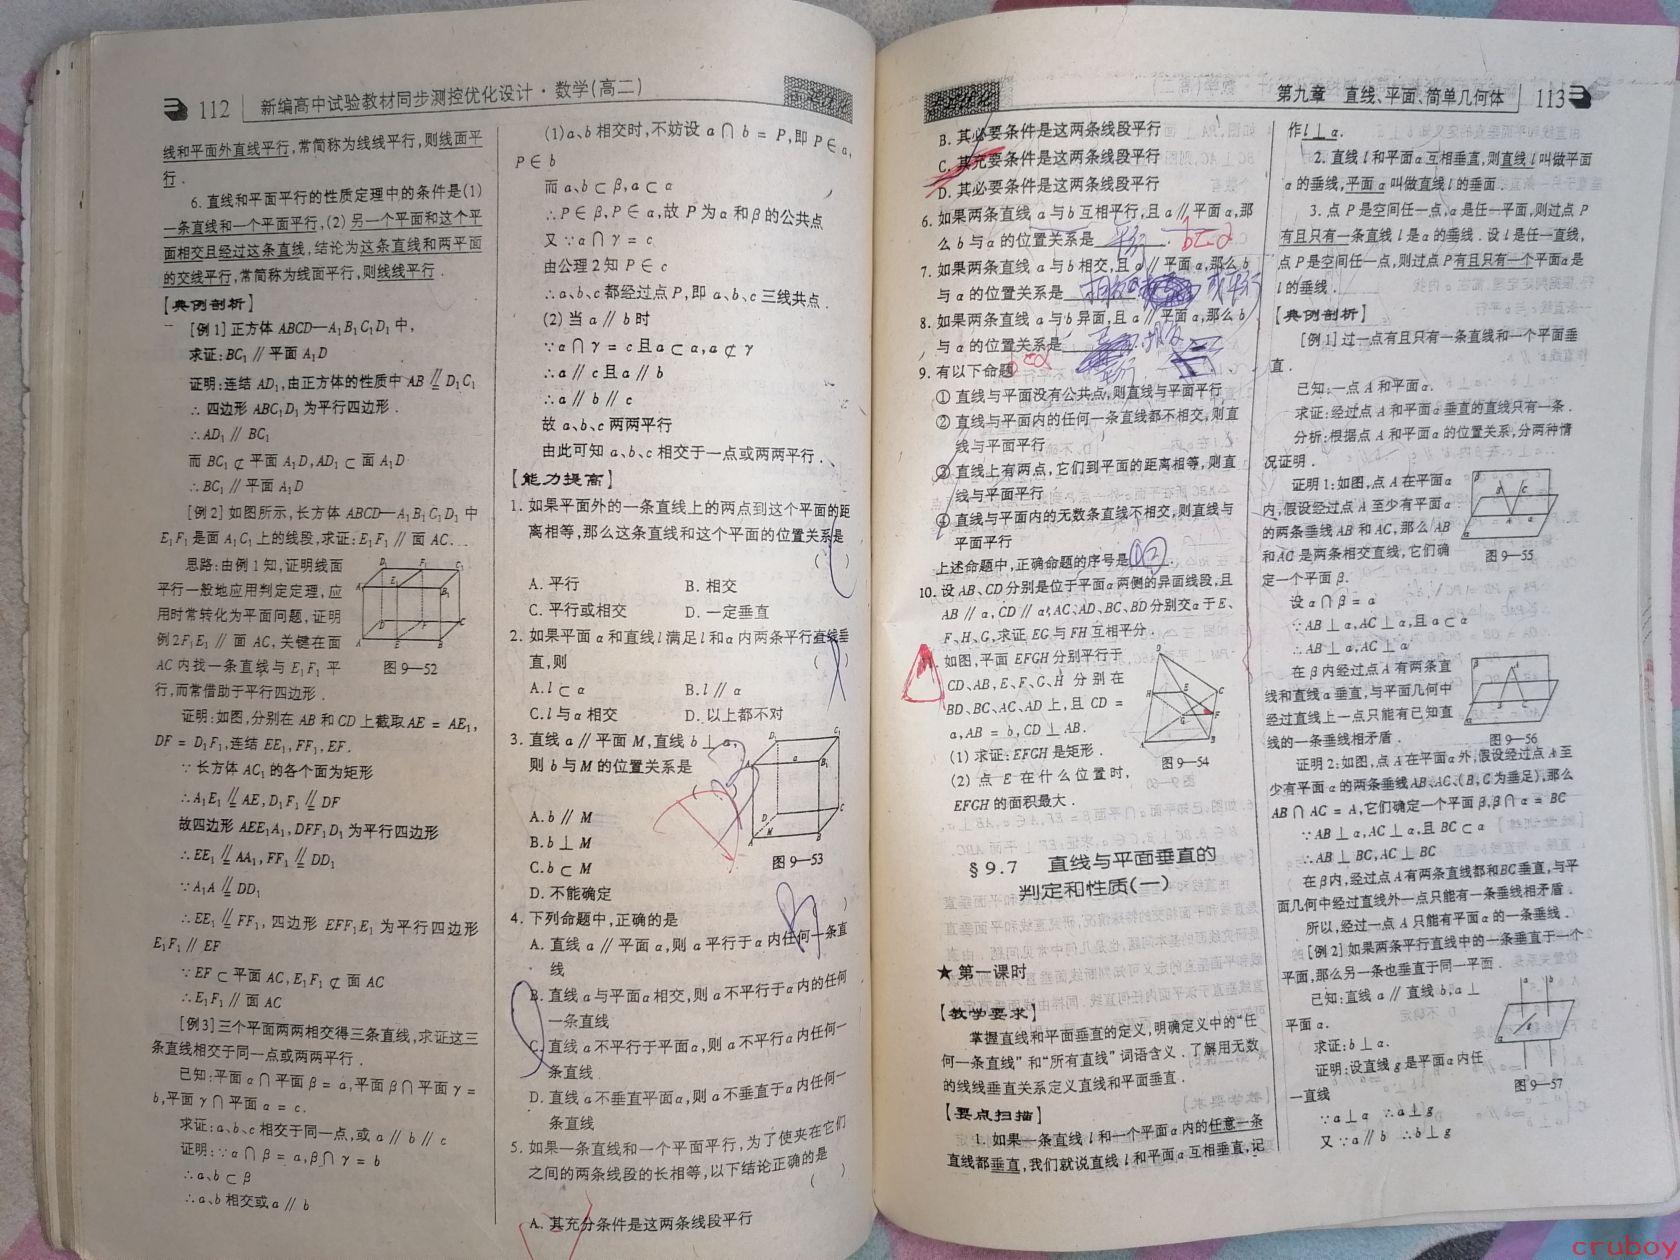 112 新编高中试验教材同步测控优化设计·数学(高二)
线和平面外直线平行,常简称为线线平行,则线面平
行.
6. 直线和平面平行的性质定理中的条件是(1)
一条直线和一个平面平行,(2) 另一个平面和这个平
面相交且经过这条直线,结论为这条直线和两平面
的交线平行,常简称为线面平行,则线线平行.
【典例剖析】
[例1]正方体 ABCD—A₁B₁C₁D₁ 中,
求证:BC₁ ∥ 平面 A₁D
证明:连结 AD₁,由正方体的性质中 AB ∥= D₁C₁
∴ 四边形 ABC₁D₁ 为平行四边形.
∴AD₁ ∥ BC₁
而 BC₁ ⊄ 平面 A₁D,AD₁ ⊂ 面 A₁D
∴BC₁ ∥ 平面 A₁D
[例2]如图所示,长方体 ABCD—A₁B₁C₁D₁ 中
E₁F₁ 是面 A₁C₁ 上的线段,求证:E₁F₁ ∥ 面 AC.
思路:由例1知,证明线面
平行一般地应用判定定理,应
用时常转化为平面问题,证明
例2F₁E₁ ∥ 面 AC,关键在面
AC 内找一条直线与 E₁F₁ 平
行,而常借助于平行四边形.
图9—52
证明:如图,分别在 AB 和 CD 上截取 AE = AE₁,
DF = D₁F₁,连结 EE₁,FF₁,EF.
∵ 长方体 AC₁ 的各个面为矩形
∴A₁E₁ ∥= AE,D₁F₁ ∥= DF
故四边形 AEE₁A₁,DFF₁D₁ 为平行四边形
∴EE₁ ∥= AA₁,FF₁ ∥= DD₁
∵A₁A ∥= DD₁
∴EE₁ ∥= FF₁,四边形 EFF₁E₁ 为平行四边形
E₁F₁ ∥ EF
∵EF ⊂ 平面 AC,E₁F₁ ⊄ 面 AC
∴E₁F₁ ∥ 面 AC
[例3]三个平面两两相交得三条直线,求证这三
条直线相交于同一点或两两平行.
已知:平面 α ∩ 平面 β = a,平面 β ∩ 平面 γ =
b,平面 γ ∩ 平面 α = c.
求证:a、b、c 相交于同一点,或 a ∥ b ∥ c
证明:∵α ∩ β = a,β ∩ γ = b
∴a、b ⊂ β
∴a、b 相交或 a ∥ b
(1)a、b 相交时,不妨设 a ∩ b = P,即 P ∈ a,
P ∈ b
而 a、b ⊂ β,a ⊂ α
∴P ∈ β,P ∈ α,故 P 为 α 和 β 的公共点
又 ∵α ∩ γ = c
由公理2知 P ∈ c
∴a、b、c 都经过点 P,即 a、b、c 三线共点.
(2) 当 a ∥ b 时
∵α ∩ γ = c 且 a ⊂ α,a ⊄ γ
∴a ∥ c 且 a ∥ b
∴a ∥ b ∥ c
故 a、b、c 两两平行
由此可知 a、b、c 相交于一点或两两平行.
【能力提高】
1. 如果平面外的一条直线上的两点到这个平面的距
离相等,那么这条直线和这个平面的位置关系是
( )
A. 平行 B. 相交
C. 平行或相交 D. 一定垂直
2. 如果平面 α 和直线 l 满足 l 和 α 内两条平行直线垂
直,则 ( )
A. l ⊂ α B. l ∥ α
C. l 与 α 相交 D. 以上都不对
3. 直线 a ∥ 平面 M,直线 b ⊥ a,
则 b 与 M 的位置关系是
( )
A. b ∥ M
B. b ⊥ M
C. b ⊂ M
D. 不能确定
图9—53
4. 下列命题中,正确的是 ( )
A. 直线 a ∥ 平面 α,则 a 平行于 α 内任何一条直
线
B. 直线 a 与平面 α 相交,则 a 不平行于 α 内的任何
一条直线
C. 直线 a 不平行于平面 α,则 a 不平行 α 内任何一
条直线
D. 直线 a 不垂直平面 α,则 a 不垂直于 α 内任何一
条直线
5. 如果一条直线和一个平面平行,为了使夹在它们
之间的两条线段的长相等,以下结论正确的是
( )
A. 其充分条件是这两条线段平行
第九章 直线、平面、简单几何体 113
B. 其必要条件是这两条线段平行
C. 其充要条件是这两条线段平行
D. 其必要条件是这两条线段平行
6. 如果两条直线 a 与 b 互相平行,且 a ∥ 平面 α,那
么 b 与 α 的位置关系是 平行. b⊂α
7. 如果两条直线 a 与 b 相交,且 a ∥ 平面 α,那么 b
与 α 的位置关系是 或平行
8. 如果两条直线 a 与 b 异面,且 a ∥ 平面 α,那么 b
与 α 的位置关系是
9. 有以下命题
① 直线与平面没有公共点,则直线与平面平行
② 直线与平面内的任何一条直线都不相交,则直
线与平面平行
③ 直线上有两点,它们到平面的距离相等,则直
线与平面平行
④ 直线与平面内的无数条直线不相交,则直线与
平面平行
上述命题中,正确命题的序号是 ①②.
10. 设 AB、CD 分别是位于平面 α 两侧的异面线段,且
AB ∥ α,CD ∥ α,AC、AD、BC、BD 分别交 α 于 E、
F、H、G,求证 EG 与 FH 互相平分.
如图,平面 EFGH 分别平行于
CD、AB,E、F、G、H 分别在
BD、BC、AC、AD 上,且 CD =
a,AB = b,CD ⊥ AB.
(1) 求证:EFGH 是矩形.
(2) 点 E 在什么位置时,
EFGH 的面积最大.
图9—54
§9.7 直线与平面垂直的
判定和性质(一)
★ 第一课时
【教学要求】
掌握直线和平面垂直的定义,明确定义中的“任
何一条直线”和“所有直线”词语含义.了解用无数
的线线垂直关系定义直线和平面垂直.
【要点扫描】
1. 如果一条直线 l 和一个平面 α 内的任意一条
直线都垂直,我们就说直线 l 和平面 α 互相垂直,记
作 l ⊥ α.
2. 直线 l 和平面 α 互相垂直,则直线 l 叫做平面
α 的垂线,平面 α 叫做直线 l 的垂面.
3. 点 P 是空间任一点,α 是任一平面,则过点 P
有且只有一条直线 l 是 α 的垂线.设 l 是任一直线,
点 P 是空间任一点,则过点 P 有且只有一个平面 α 是
l 的垂线.
【典例剖析】
[例1]过一点有且只有一条直线和一个平面垂
直.
已知:一点 A 和平面 α.
求证:经过点 A 和平面 α 垂直的直线只有一条.
分析:根据点 A 和平面 α 的位置关系,分两种情
况证明.
证明1:如图,点 A 在平面 α
内,假设经过点 A 至少有平面 α
的两条垂线 AB 和 AC,那么 AB
和 AC 是两条相交直线,它们确
定一个平面 β.
图9—55
设 α ∩ β = a
∵AB ⊥ α,AC ⊥ α,且 a ⊂ α
∴AB ⊥ a,AC ⊥ a
在 β 内经过点 A 有两条直
线和直线 a 垂直,与平面几何中
经过直线上一点只能有已知直
线的一条垂线相矛盾.
图9—56
证明2:如图,点 A 在平面 α 外,假设经过点 A 至
少有平面 α 的两条垂线 AB、AC、(B、C 为垂足),那么
AB ∩ AC = A,它们确定一个平面 β,β ∩ α = BC
∵AB ⊥ α,AC ⊥ α,且 BC ⊂ α
∴AB ⊥ BC,AC ⊥ BC
在 β 内,经过点 A 有两条直线都和 BC 垂直,与平
面几何中经过直线外一点只能有一条垂线相矛盾.
所以,经过一点 A 只能有平面 α 的一条垂线.
[例2]如果两条平行直线中的一条垂直于一个
平面,那么另一条也垂直于同一平面.
已知:直线 a ∥ 直线 b,a ⊥
平面 α.
求证:b ⊥ α.
证明:设直线 g 是平面 α 内任
一直线
图9—57
∵a ⊥ α ∴a ⊥ g
又 ∵a ∥ b ∴b ⊥ g
cruboy